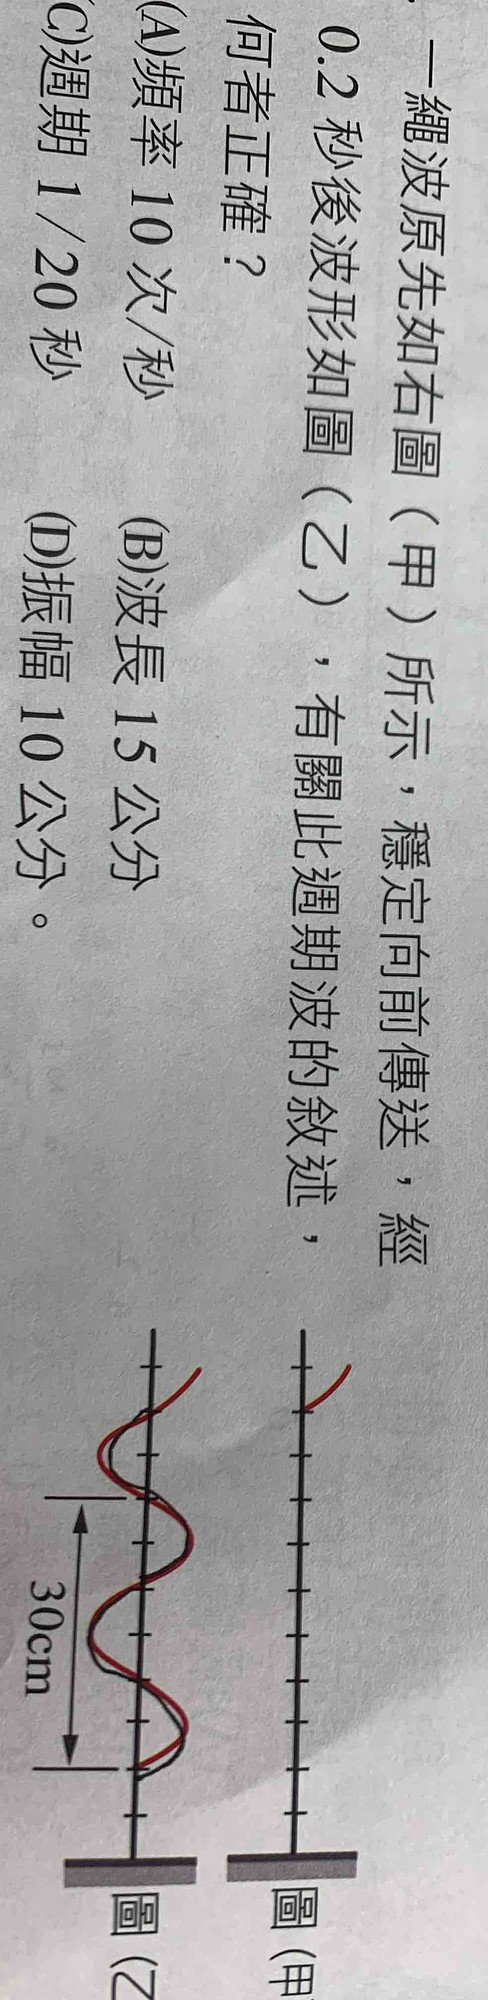 一繩波原先如右圖（甲）所示，穩定向前傳送，經
0.2 秒後波形如圖（乙），有關此週期波的敘述，
何者正確？
(A)頻率 10 次/秒　(B)波長 15 公分
(C)週期 1/20 秒　(D)振幅 10 公分。
圖（甲
30cm
圖（乙